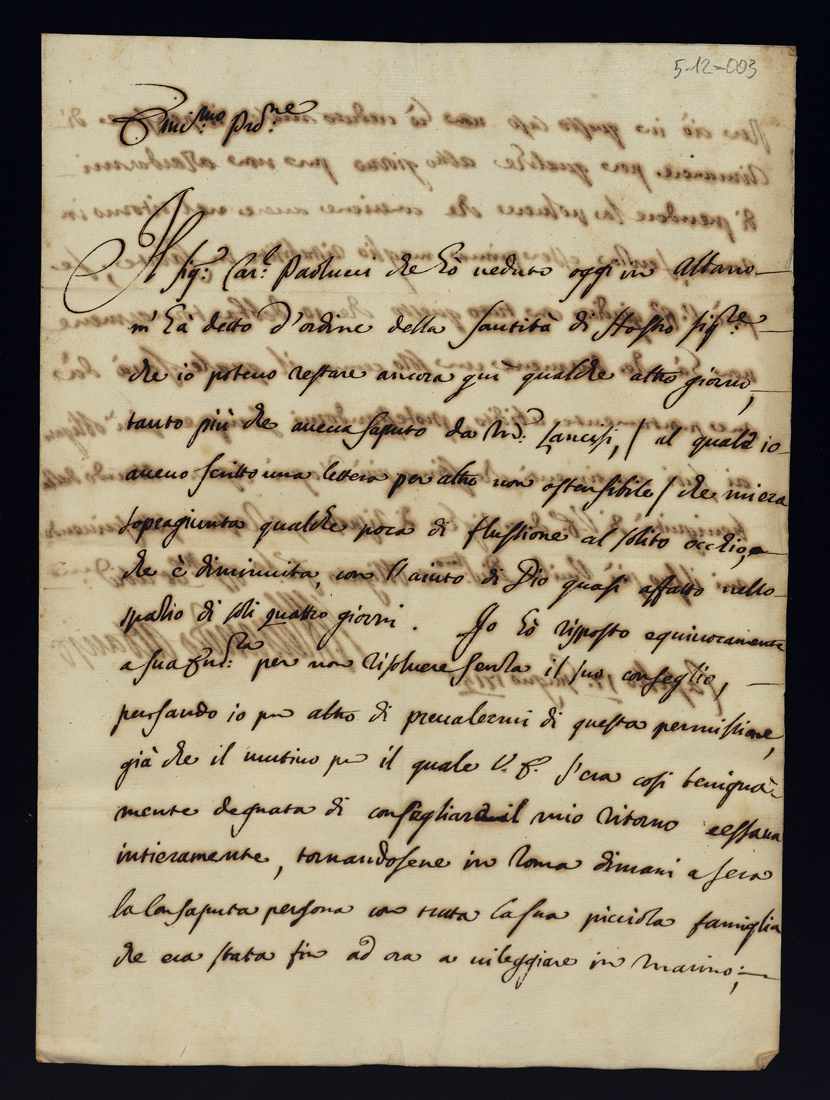 5-12-003
Em.mo Prõne
Il Sig.r Car.l Paolucci che hò veduto oggi in Albano
m'hà detto d'ordine della Santità di Nostro Sig.re
che io potevo restare ancora qui qualche altro giorno,
tanto più che aveva saputo da M.r Lancisi, / al quale io
avevo scritto una lettera per altro non ostensibile / che mi era
sopragiunta qualche poca di flussione al solito occhio,
che è diminuita, con l'aiuto di Dio quasi affatto nello
spazio di soli quattro giorni. Io hò risposto equivocamente
a sua Em.za per non risolvere senza il suo conseglio,
pensando io per altro di prevalermi di questa permissione,
già che il motivo per il quale V. E. s'era così benigna-
mente degnata di consegliare il mio ritorno cessava
intieramente, tornandosene in Roma dimani a sera
la consaputa persona con tutta la sua picciola famiglia
che era stata fin ad ora a vileggiare in Marino;